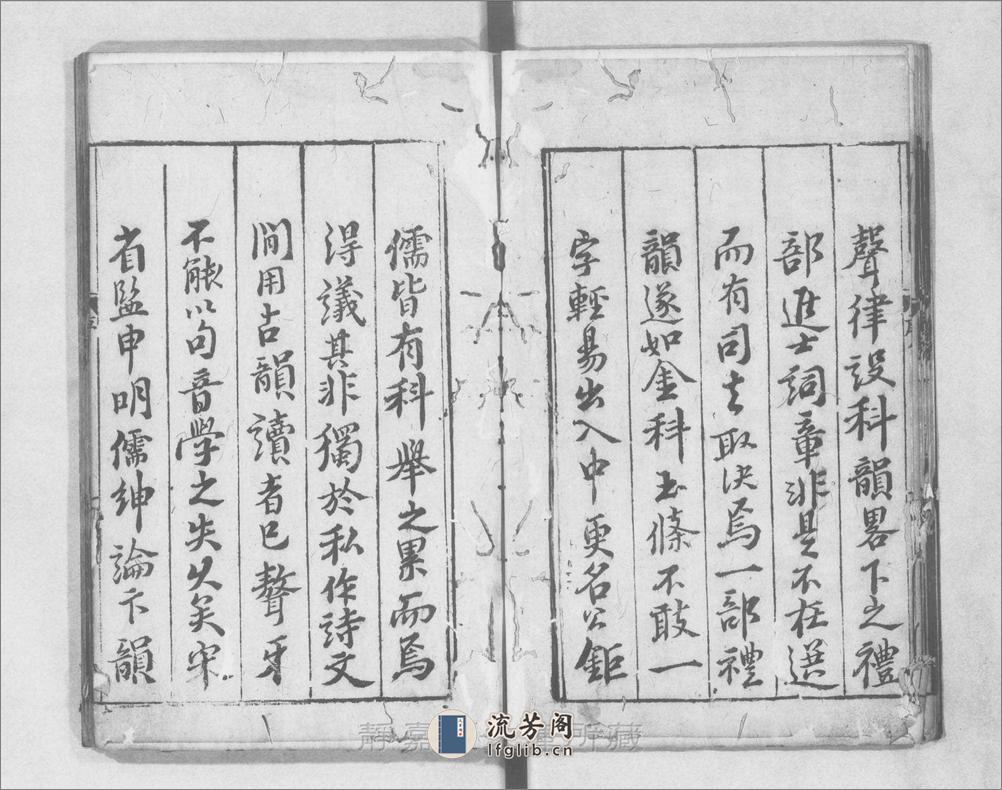 聲律設科韻畧下之禮
部進士詞章非是不在選
而有司去取决焉一部禮
韻遂如金科玉條不敢一
字輕易出入中更名公鉅
儒皆有科舉之累而焉
得議其非獨於私作詩文
間用古韻讀者已聱牙
不能以句音學之失久矣宋
省監申明儒紳論下韻
靜嘉 所藏
流芳阁
lfglib.cn